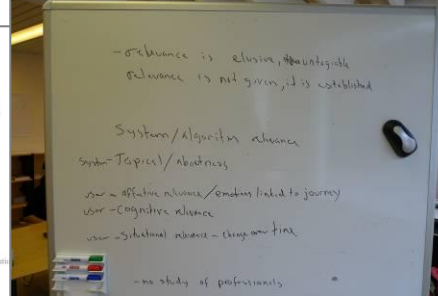 - relevance is elusive,
relevance is not given, it is established
System/Algoritm relevance
system - Topical/Aboutness
user - affective relevance/emotions/linked to journey
user - Cognitive relevance
user - Situational relevance - change over time
- no study of professionals